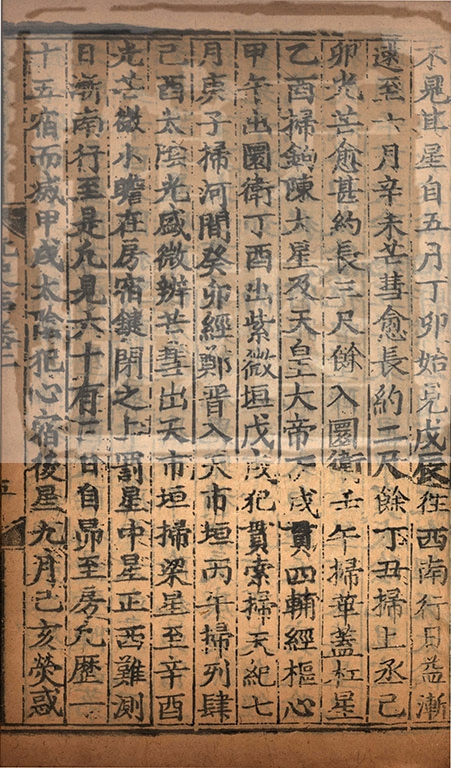 不見其星自五月丁卯始見戊辰徃西南行日益漸
速至六月辛未芒彗愈長約二尺餘丁丑掃上丞己
卯光芒愈甚約長三尺餘入圜衛壬午掃華蓋杠星
乙酉掃鉤陳大星及天皇大帝丙戌貫四輔經樞心
甲午出圜衛丁酉出紫微垣戊戌犯貫索掃天紀七
月庚子掃河間癸卯經鄭晉入天市垣丙午掃列肆
己酉太陰光盛微辨芒彗出天市垣掃梁星至辛酉
光芒微小瞻在房宿鍵閉之上罰星中星正西難測
日漸南行至是凡見六十有三日自昴至房凡歷一
十五宿而滅甲戌太陰犯心宿後星九月己亥熒惑
五